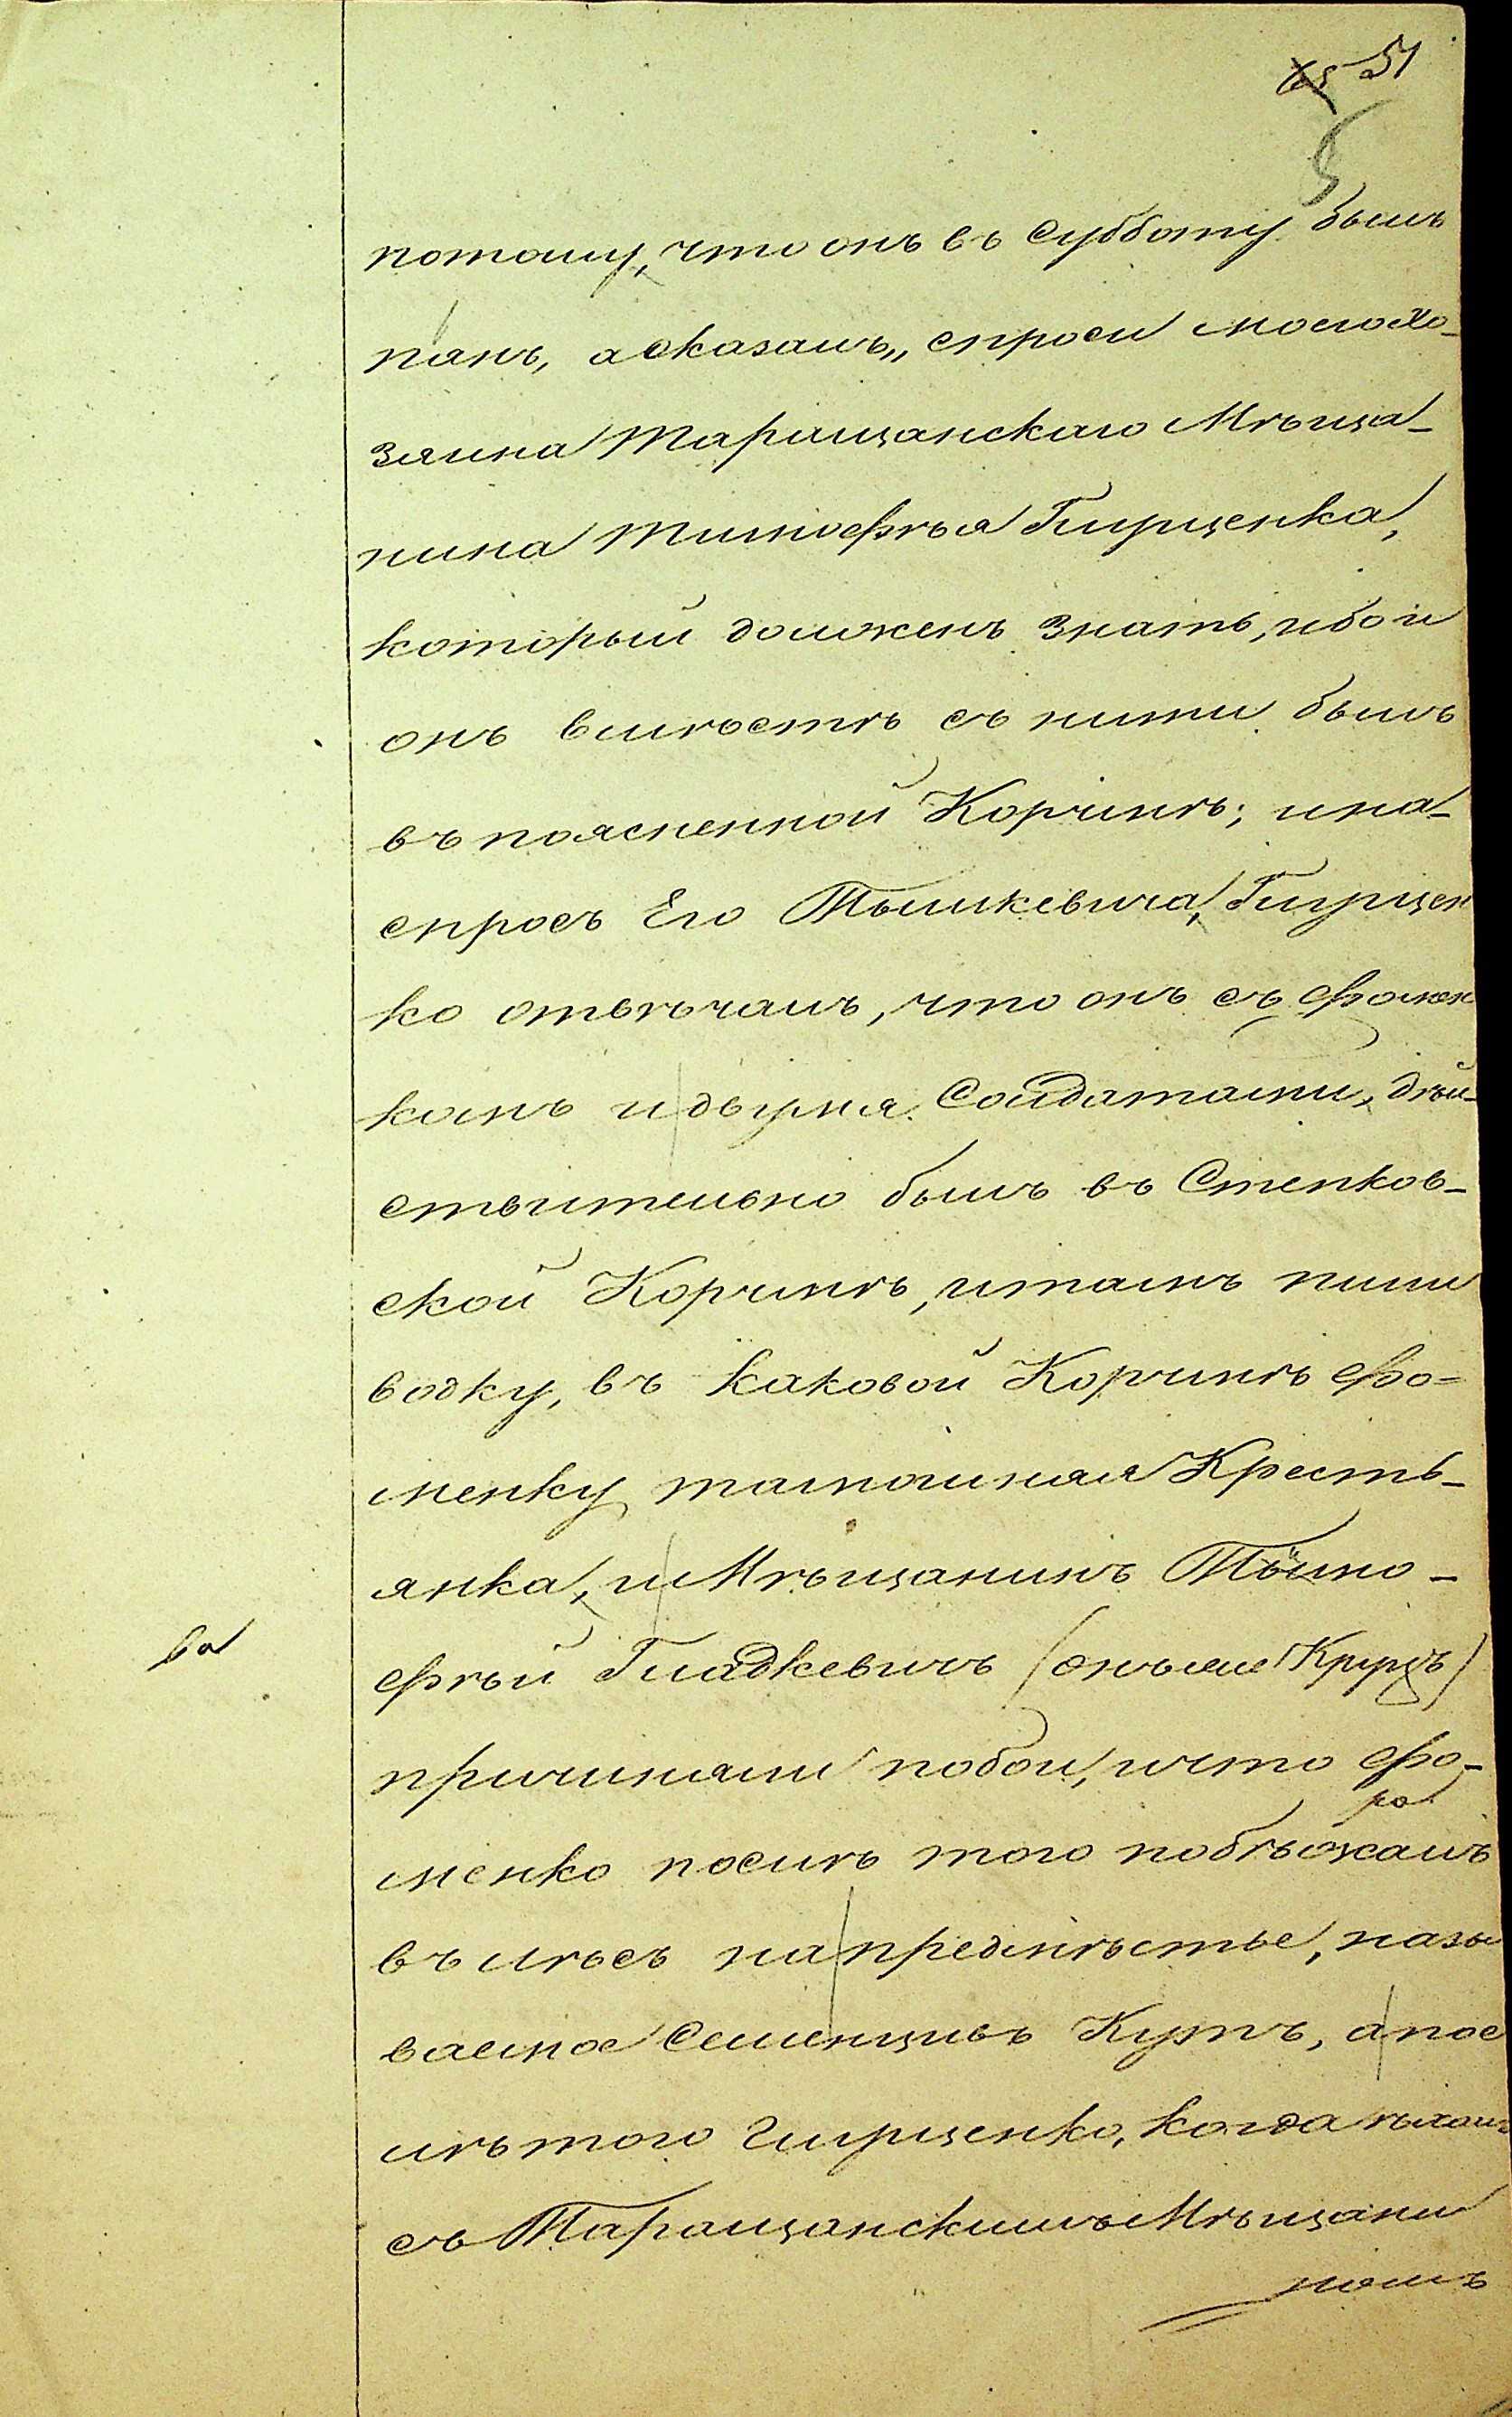 51
потому, что онъ въ Субботу былъ
панъ, а сказалъ „ спроси моего Хо-
зяина Таращанскаго Мѣща-
нина Тимофѣя Гирщенка,
который долженъ знать, ибо и
онъ вмѣстѣ съ ними былъ
въ поясненной Корчмѣ; и на
спросъ Его Тышкевича, Гирщен
ко отвѣчалъ, что онъ съ Фомен
комъ и двумя Солдатами, дѣй-
ствительно былъ въ Степков-
ской Корчмѣ, и тамъ пили
водку, въ каковой Корчмѣ Фо-
менку тамошняя Кресть-
янка, и Мѣщанинъ Тимо-
фѣй Гладкевичъ (онъ же Круцъ)
ва
причиняли побои, и что Фо-
менко послѣ того побѣжалъ
въ лѣсъ на предмѣстье, назы
ваемое Семенцивъ Кутъ, а пос
лѣ того Гирщенко, когда ѣхалъ
съ Таращанскимъ Мѣщани
номъ